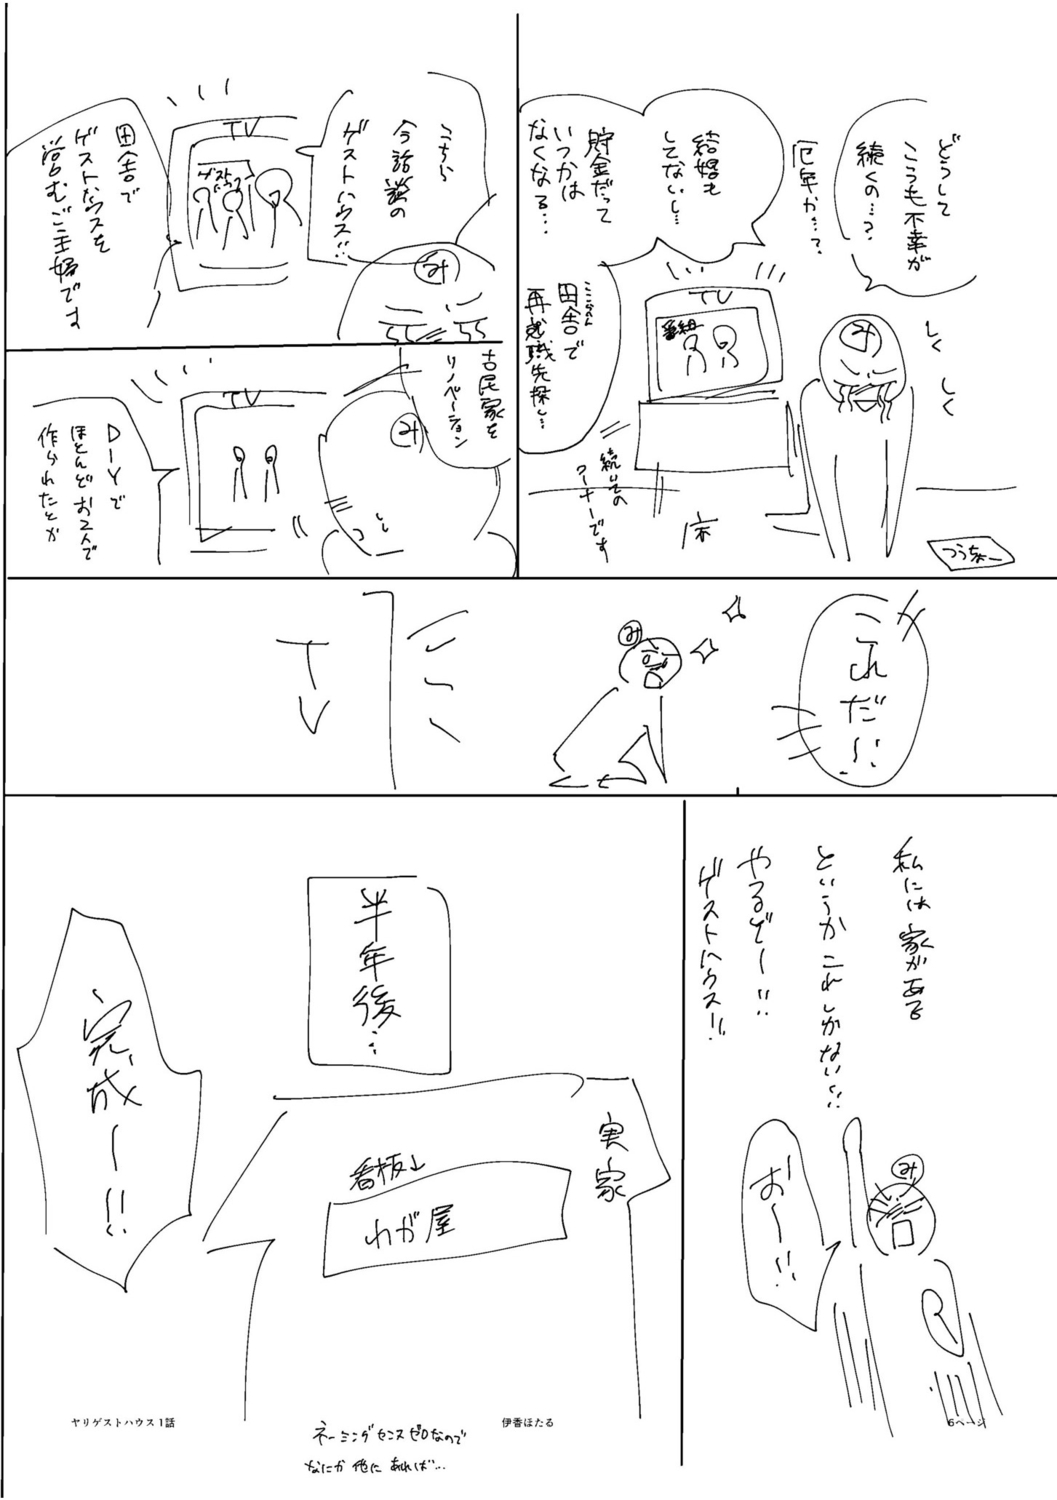 どうして
こうも不幸が
続くの…?
厄年か…?
結婚も
してないし…
貯金だって
いつかは
なくなる…
ここらへん
田舎で
再就職先探し…
TV
番組
み
しく
しく
続いての
コーナーです
床
つうちょー
こちら
今話題の
ゲストハウス!!
TV
ゲスト
ハウス
み
田舎で
ゲストハウスを
営むご主婦です
古民家を
リノベーション
み
TV
DIYで
ほとんどお二人で
作られたとか
これだー!!
み
TV
私には家がある
というかこれしかない!!
やるぞー!!
ゲストハウス!!
み
おー!!
半年後…
実家
看板↓
わが屋
完成ー!!
ヤリゲストハウス1話
伊香ほたる
6ページ
ネーミングセンスゼロなので
なにか他にあれば…